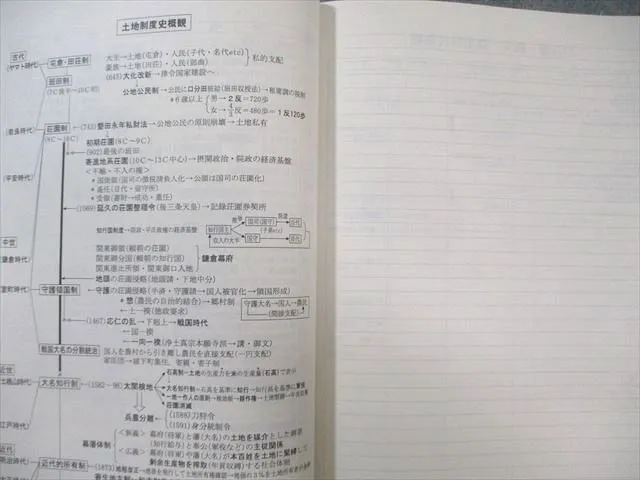 土地制度史概観
古代
(ヤマト時代)
屯倉・田荘制
大王→土地(屯倉)・人民(子代・名代etc)
豪族→土地(田荘)・人民(部曲)
私的支配
(645)大化改新→律令国家建設へ
班田制
(7C後半〜10C初)
公地公民制→公民に口分田班給(班田収授法)→租庸調の税制
*6歳以上
男→2反=720歩
女→4/3反=480歩=1反120歩
(奈良時代)
荘園制
(8C〜16C)
(743)墾田永年私財法→公地公民の原則崩壊→土地私有
初期荘園(8C〜9C)
(902)最後の班田
寄進地系荘園(10C〜13C中心)→摂関政治・院政の経済基盤
<不輸・不入の権>
(平安時代)
*国衙領(国司の徴税請負人化→公領は国司の荘園化)
*遙任(目代・留守所)
*受領(寄時→成功・重任)
(1069)延久の荘園整理令(後三条天皇)→記録荘園券契所
知行国制度→院政・平氏政権の経済基盤
知行国主
収入の大半
国司(国守)
(子弟etc)
国守
目代
目代
中世
鎌倉時代)
関東御領(頼朝の荘園)
関東御分国(頼朝の知行国)
関東進止所領・関東御口入地
鎌倉幕府
地頭の荘園侵略(地頭請・下地中分)
室町時代)
守護領国制
←守護の荘園侵略(半済・守護請→国人被官化→領国形成)
*惣(農民の自治的結合)→郷村制
←土一揆(徳政要求)
守護大名→国人→農民
(間接支配)
(1467)応仁の乱→下剋上→戦国時代
←国一揆
←一向一揆(浄土真宗本願寺派→講・御文)
戦国大名の分国統治
国人を農村から引き離し農民を直接支配(一円支配)
家臣団→城下町集住、寄親・寄子制
近世
大名知行制
(1582〜98)太閤検地
石高制→土地の生産力を米の生産量(石高)で表示
大名知行制→石高を基準に知行→知行高を基準に軍役
荘園消滅
兵農分離
(1588)刀狩令
(1591)身分統制令
江戸時代)
幕藩体制
<狭義>幕府(将軍)と藩(大名)の土地を媒介とした御恩
(知行給与)と奉公(軍役など)の主従関係
<広義>幕府(将軍)や藩(大名)が本百姓を土地に緊縛して
剰余生産物を搾取(年貢収納)する社会体制
近代
明治時代)
近代的所有制